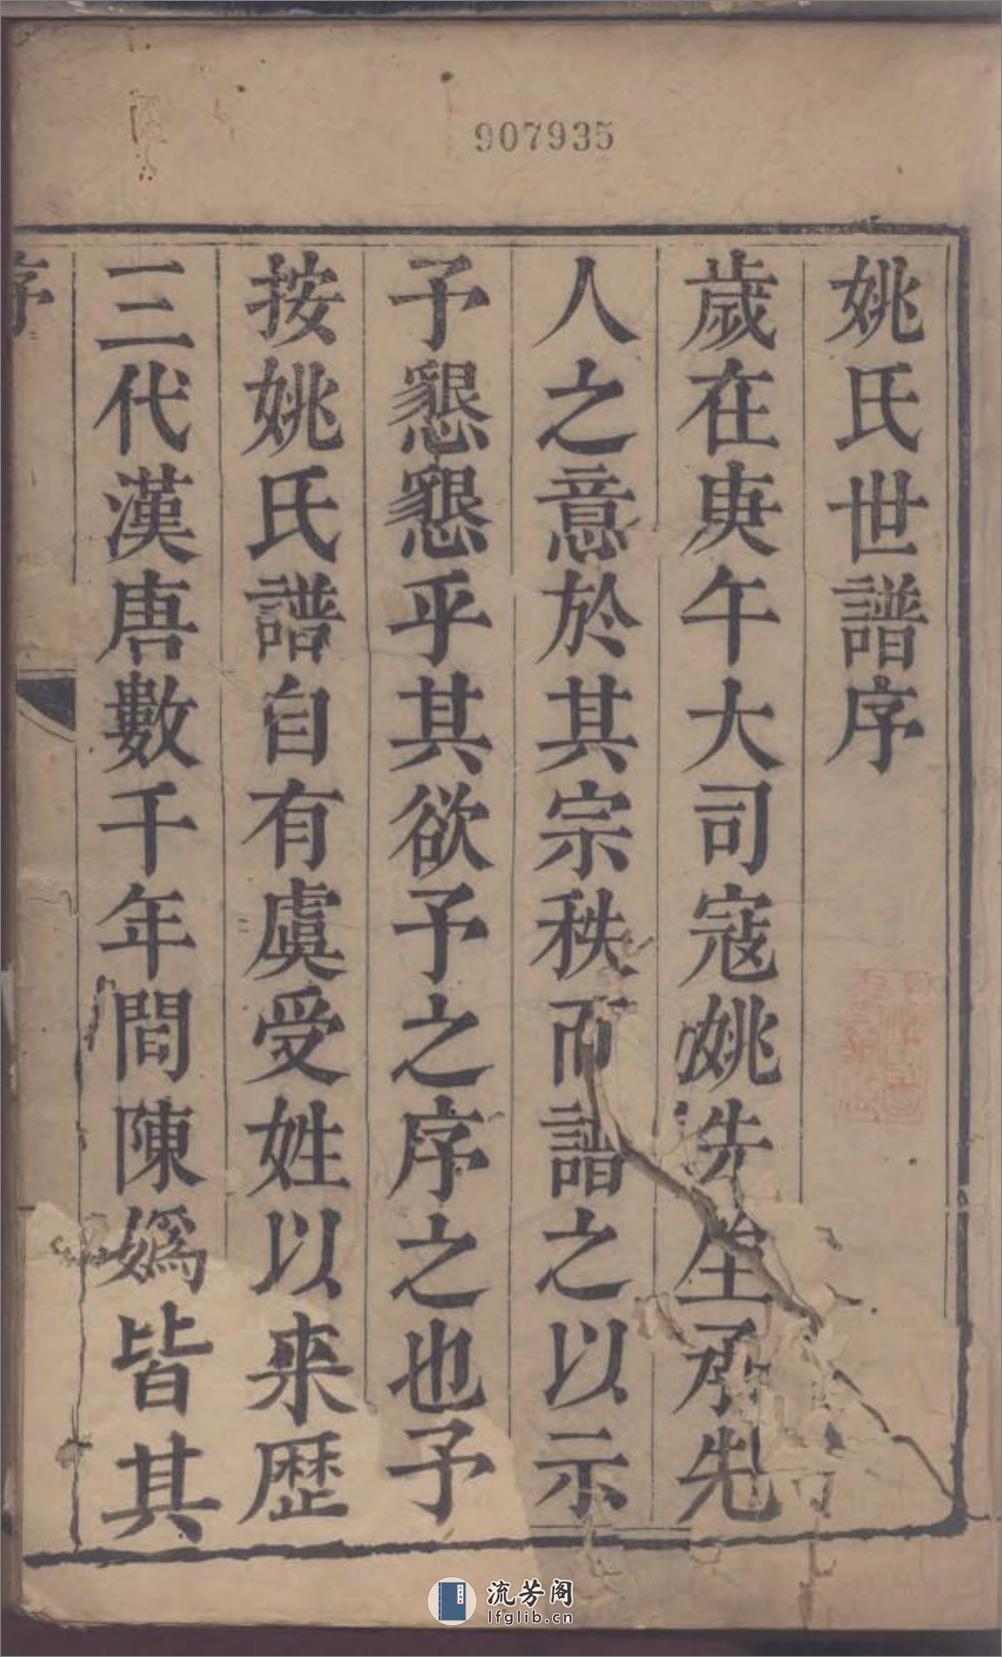 907935
姚氏世譜序
歲在庚午大司寇姚先生承先
人之意於其宗秩而譜之以示
予懇懇乎其欲予之序之也予
按姚氏譜自有虞受姓以来歷
三代漢唐數千年間陳媯皆其
序
流芳阁
lfglib.cn